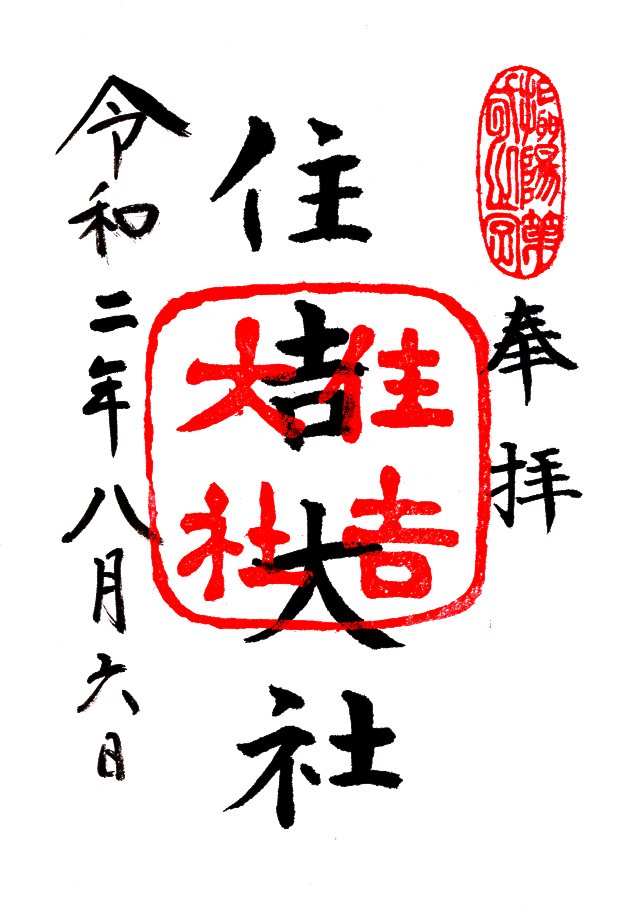 奉拝
住吉大社
住吉
大社
令和二年八月六日